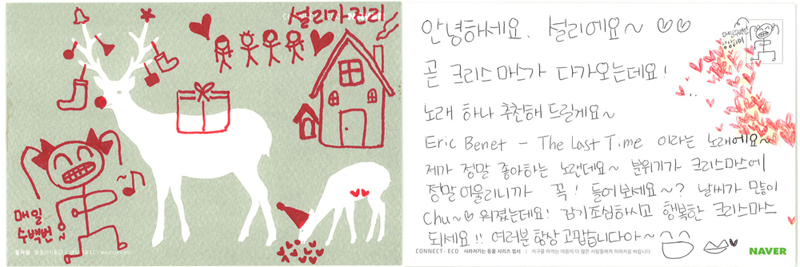 설리가진리
매일
수백번
안녕하세요. 설리에요~ ♡♡
곧 크리스마스가 다가오는데요!
노래 하나 추천해 드릴게요~
Eric Benet - The Last Time 이라는 노래에요~
제가 정말 좋아하는 노랜데요~ 분위기가 크리스마스에
정말 어울리니까 꼭! 들어보세요~? 날씨가 많이
Chu~♡ 워졌는데요! 감기조심하시고 행복한 크리스마스
되세요!! 여러분 항상 고맙습니다아~
CONNECT·ECO 사라져가는 동물 시리즈 엽서
NAVER